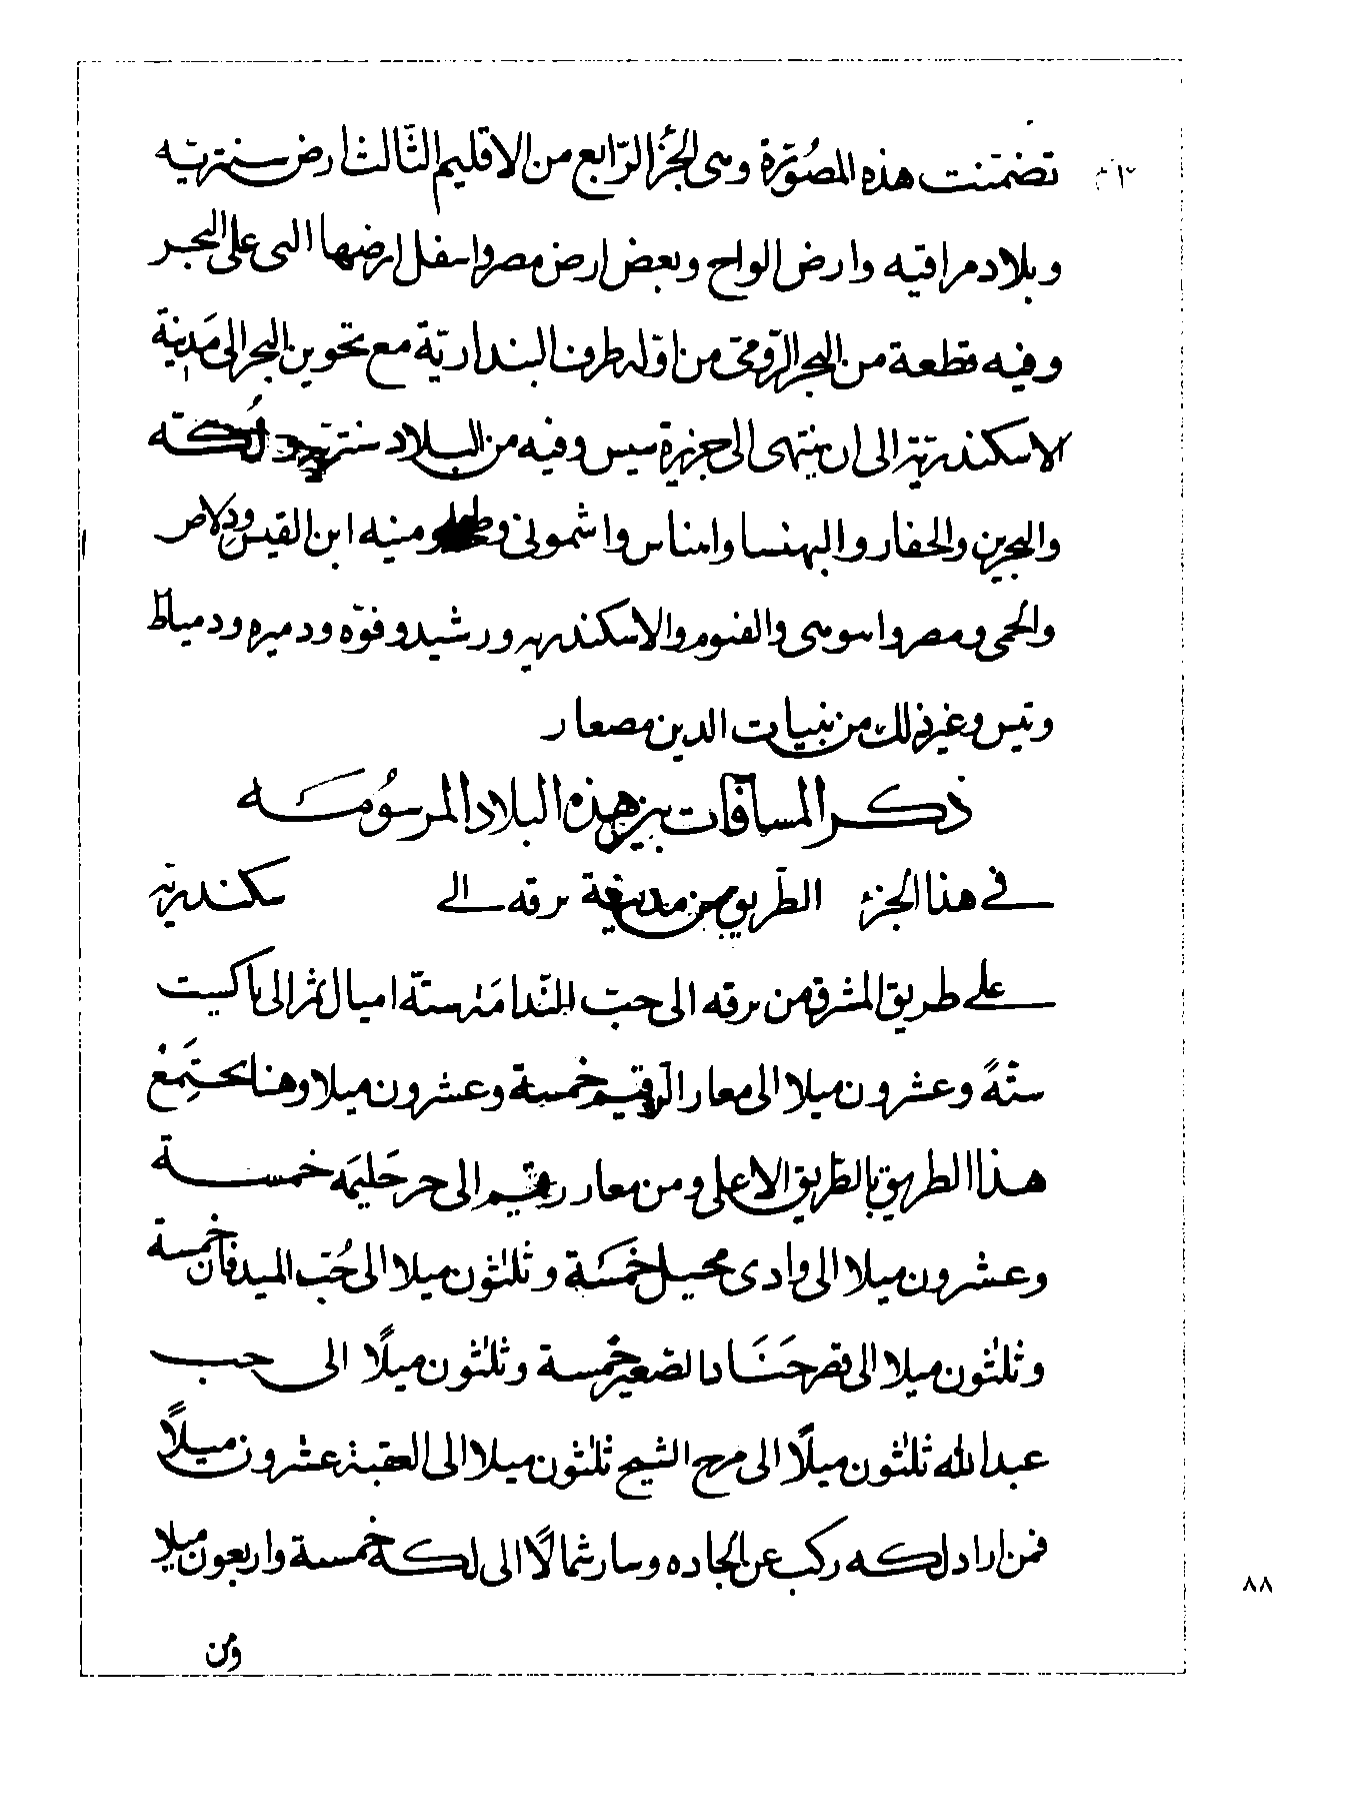 تضمنت هذه المصُوّرة وهى الجُزء الرّابع من الاقليم الثّالث ارض سنتريّه
وبلاد مراقيه وارض الواح وبعض ارض مصر واسفل ارضها التى على البحر
وفيه قطعة من البحر الرّومىّ من اوّله طرف البنداريّة مع تحوين البحر الى مَدينة
الاسكندريّة الى ان ينتهى الى جزيرة تنيس وفيه من البلاد سنتريه لُكّه
والبحرين والحفار والبهنسا واهناس واشمونى ومنيه ابن القيس ودِلاص
والحمى ومصر واسوسى والفيوم والاسكندريه ورشيد وفوّه ودميره ودمياط
وتنيس وغير ذلك من بنيات الدين مصعار
ذكر المسافات بين هذه البلاد المرسُومَه
فى هذا الجزء الطّريق من مدينة برقه الى سكندريّه
على طريق المشرق من برقه الى جبّ المنّدامَه ستّة اميال ثم الى باكست
ستّهً وعشرون ميلا الى معار الرّقيم خمسة وعشرون ميلا وهنا يجتَمِعْ
هذا الطريق بالطّريق الاعلى ومن معار رقيم الى حر حَليمَه خمسة
وعشرون ميلا الى وادى مخيل خمسَة وثلثون ميلا الى جُبّ الميدفان خمسة
وثلثون ميلا الى قصر حَنَادا لصغير خمسة وثلثون ميلًا الى جب
عبد الله ثلثون ميلًا الى مرج الشيح ثلثون ميلا الى العقبة عشرون ميلًا
فمن اراد لكه ركب عن الجاده وسار شمالًا الى لكه خمسة واربعون ميلا
ومن
٨٨